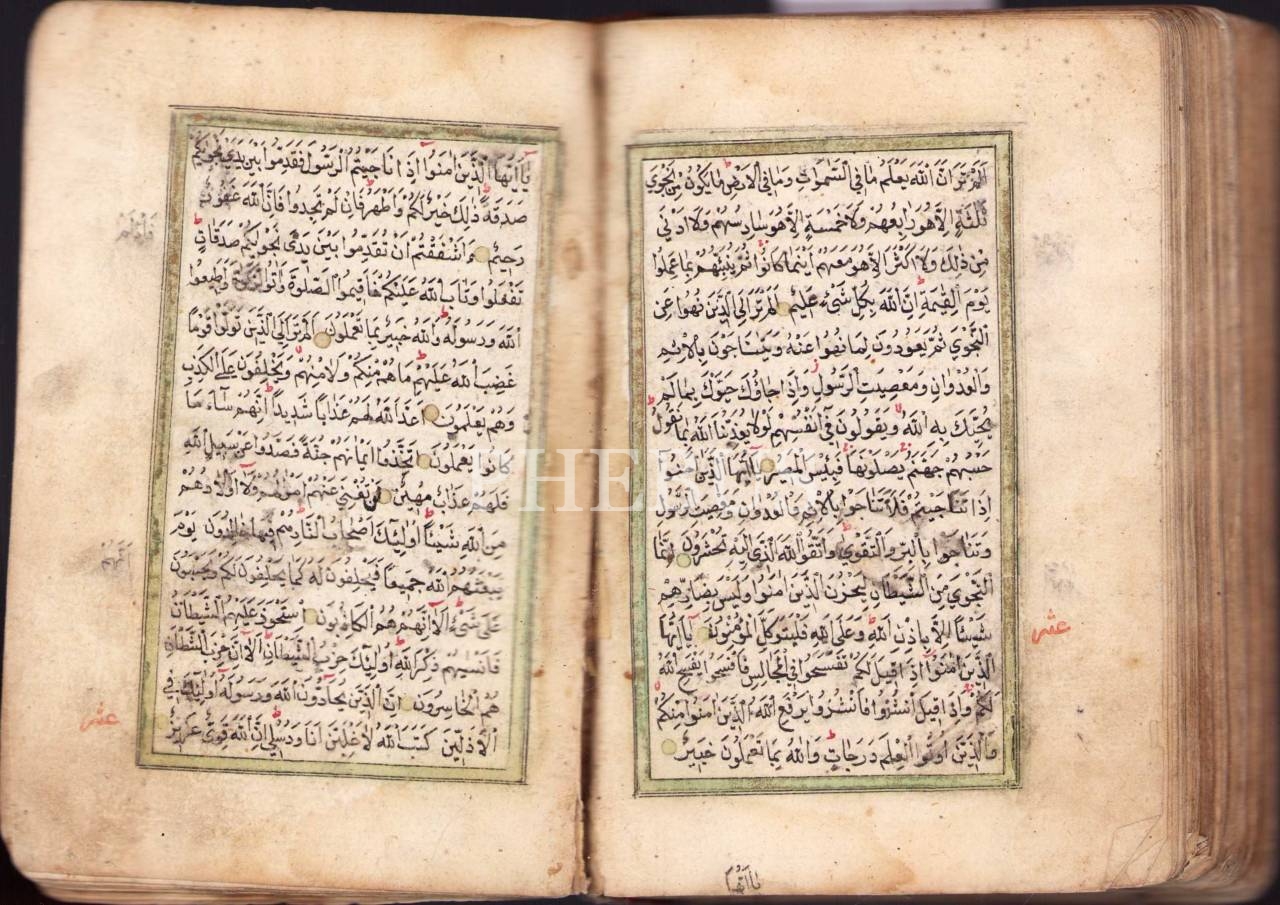 اَلَمْ تَرَ اَنَّ اللّٰهَ يَعْلَمُ مَا فِي السَّمٰوَاتِ وَمَا فِي الْاَرْضِ مَا يَكُونُ مِنْ نَجْوٰى
ثَلٰثَةٍ اِلَّا هُوَ رَابِعُهُمْ وَلَا خَمْسَةٍ اِلَّا هُوَ سَادِسُهُمْ وَلَا اَدْنٰى
مِنْ ذٰلِكَ وَلَا اَكْثَرَ اِلَّا هُوَ مَعَهُمْ اَيْنَمَا كَانُوا ثُمَّ يُنَبِّئُهُمْ بِمَا عَمِلُوا
يَوْمَ الْقِيٰمَةِ اِنَّ اللّٰهَ بِكُلِّ شَيْءٍ عَلِيمٌ اَلَمْ تَرَ اِلَى الَّذِينَ نُهُوا عَنِ
النَّجْوٰى ثُمَّ يَعُودُونَ لِمَا نُهُوا عَنْهُ وَيَتَنَاجَوْنَ بِالْاِثْمِ
وَالْعُدْوَانِ وَمَعْصِيَتِ الرَّسُولِ وَاِذَا جَاؤُكَ حَيَّوْكَ بِمَا لَمْ
يُحَيِّكَ بِهِ اللّٰهُ وَيَقُولُونَ فِي اَنْفُسِهِمْ لَوْلَا يُعَذِّبُنَا اللّٰهُ بِمَا نَقُولُ
حَسْبُهُمْ جَهَنَّمُ يَصْلَوْنَهَا فَبِئْسَ الْمَصِيرُ يَا اَيُّهَا الَّذِينَ اٰمَنُوا
اِذَا تَنَاجَيْتُمْ فَلَا تَتَنَاجَوْا بِالْاِثْمِ وَالْعُدْوَانِ وَمَعْصِيَتِ الرَّسُولِ
وَتَنَاجَوْا بِالْبِرِّ وَالتَّقْوٰى وَاتَّقُوا اللّٰهَ الَّذِي اِلَيْهِ تُحْشَرُونَ اِنَّمَا
النَّجْوٰى مِنَ الشَّيْطَانِ لِيَحْزُنَ الَّذِينَ اٰمَنُوا وَلَيْسَ بِضَارِّهِمْ
شَيْئًا اِلَّا بِاِذْنِ اللّٰهِ وَعَلَى اللّٰهِ فَلْيَتَوَكَّلِ الْمُؤْمِنُونَ يَا اَيُّهَا
الَّذِينَ اٰمَنُوا اِذَا قِيلَ لَكُمْ تَفَسَّحُوا فِي الْمَجَالِسِ فَافْسَحُوا يَفْسَحِ اللّٰهُ
لَكُمْ وَاِذَا قِيلَ انْشُزُوا فَانْشُزُوا يَرْفَعِ اللّٰهُ الَّذِينَ اٰمَنُوا مِنْكُمْ
وَالَّذِينَ اُوتُوا الْعِلْمَ دَرَجَاتٍ وَاللّٰهُ بِمَا تَعْمَلُونَ خَبِيرٌ
عشر
يَا اَيُّهَا
يَا اَيُّهَا الَّذِينَ اٰمَنُوا اِذَا نَاجَيْتُمُ الرَّسُولَ فَقَدِّمُوا بَيْنَ يَدَيْ نَجْوٰيكُمْ
صَدَقَةً ذٰلِكَ خَيْرٌ لَكُمْ وَاَطْهَرُ فَاِنْ لَمْ تَجِدُوا فَاِنَّ اللّٰهَ غَفُورٌ
رَحِيمٌ ءَاَشْفَقْتُمْ اَنْ تُقَدِّمُوا بَيْنَ يَدَيْ نَجْوٰيكُمْ صَدَقَاتٍ
تَفْعَلُوا وَتَابَ اللّٰهُ عَلَيْكُمْ فَاَقِيمُوا الصَّلٰوةَ وَاٰتُوا الزَّكٰوةَ وَاَطِيعُوا
اللّٰهَ وَرَسُولَهُ وَاللّٰهُ خَبِيرٌ بِمَا تَعْمَلُونَ اَلَمْ تَرَ اِلَى الَّذِينَ تَوَلَّوْا قَوْمًا
غَضِبَ اللّٰهُ عَلَيْهِمْ مَا هُمْ مِنْكُمْ وَلَا مِنْهُمْ وَيَحْلِفُونَ عَلَى الْكَذِبِ
وَهُمْ يَعْلَمُونَ اَعَدَّ اللّٰهُ لَهُمْ عَذَابًا شَدِيدًا اِنَّهُمْ سَاءَ مَا
كَانُوا يَعْمَلُونَ اِتَّخَذُوا اَيْمَانَهُمْ جُنَّةً فَصَدُّوا عَنْ سَبِيلِ اللّٰهِ
فَلَهُمْ عَذَابٌ مُهِينٌ لَنْ تُغْنِيَ عَنْهُمْ اَمْوَالُهُمْ وَلَا اَوْلَادُهُمْ
مِنَ اللّٰهِ شَيْئًا اُولٰئِكَ اَصْحَابُ النَّارِ هُمْ فِيهَا خَالِدُونَ يَوْمَ
يَبْعَثُهُمُ اللّٰهُ جَمِيعًا فَيَحْلِفُونَ لَهُ كَمَا يَحْلِفُونَ لَكُمْ وَيَحْسَبُونَ
عَلٰى شَيْءٍ اَلَا اِنَّهُمْ هُمُ الْكَاذِبُونَ اِسْتَحْوَذَ عَلَيْهِمُ الشَّيْطَانُ
فَاَنْسٰيهُمْ ذِكْرَ اللّٰهِ اُولٰئِكَ حِزْبُ الشَّيْطَانِ اَلَا اِنَّ حِزْبَ الشَّيْطَانِ
هُمُ الْخَاسِرُونَ اِنَّ الَّذِينَ يُحَادُّونَ اللّٰهَ وَرَسُولَهُ اُولٰئِكَ فِي
الْاَذَلِّينَ كَتَبَ اللّٰهُ لَاَغْلِبَنَّ اَنَا وَرُسُلِي اِنَّ اللّٰهَ قَوِيٌّ عَزِيزٌ
عشر